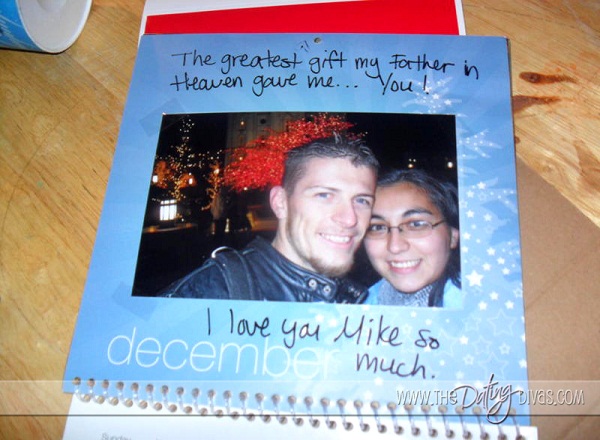 The greatest gift my Father in
Heaven gave me... You!
I love you Mike so
much.
december
Sunday
www.THE Dating DIVAS.COM